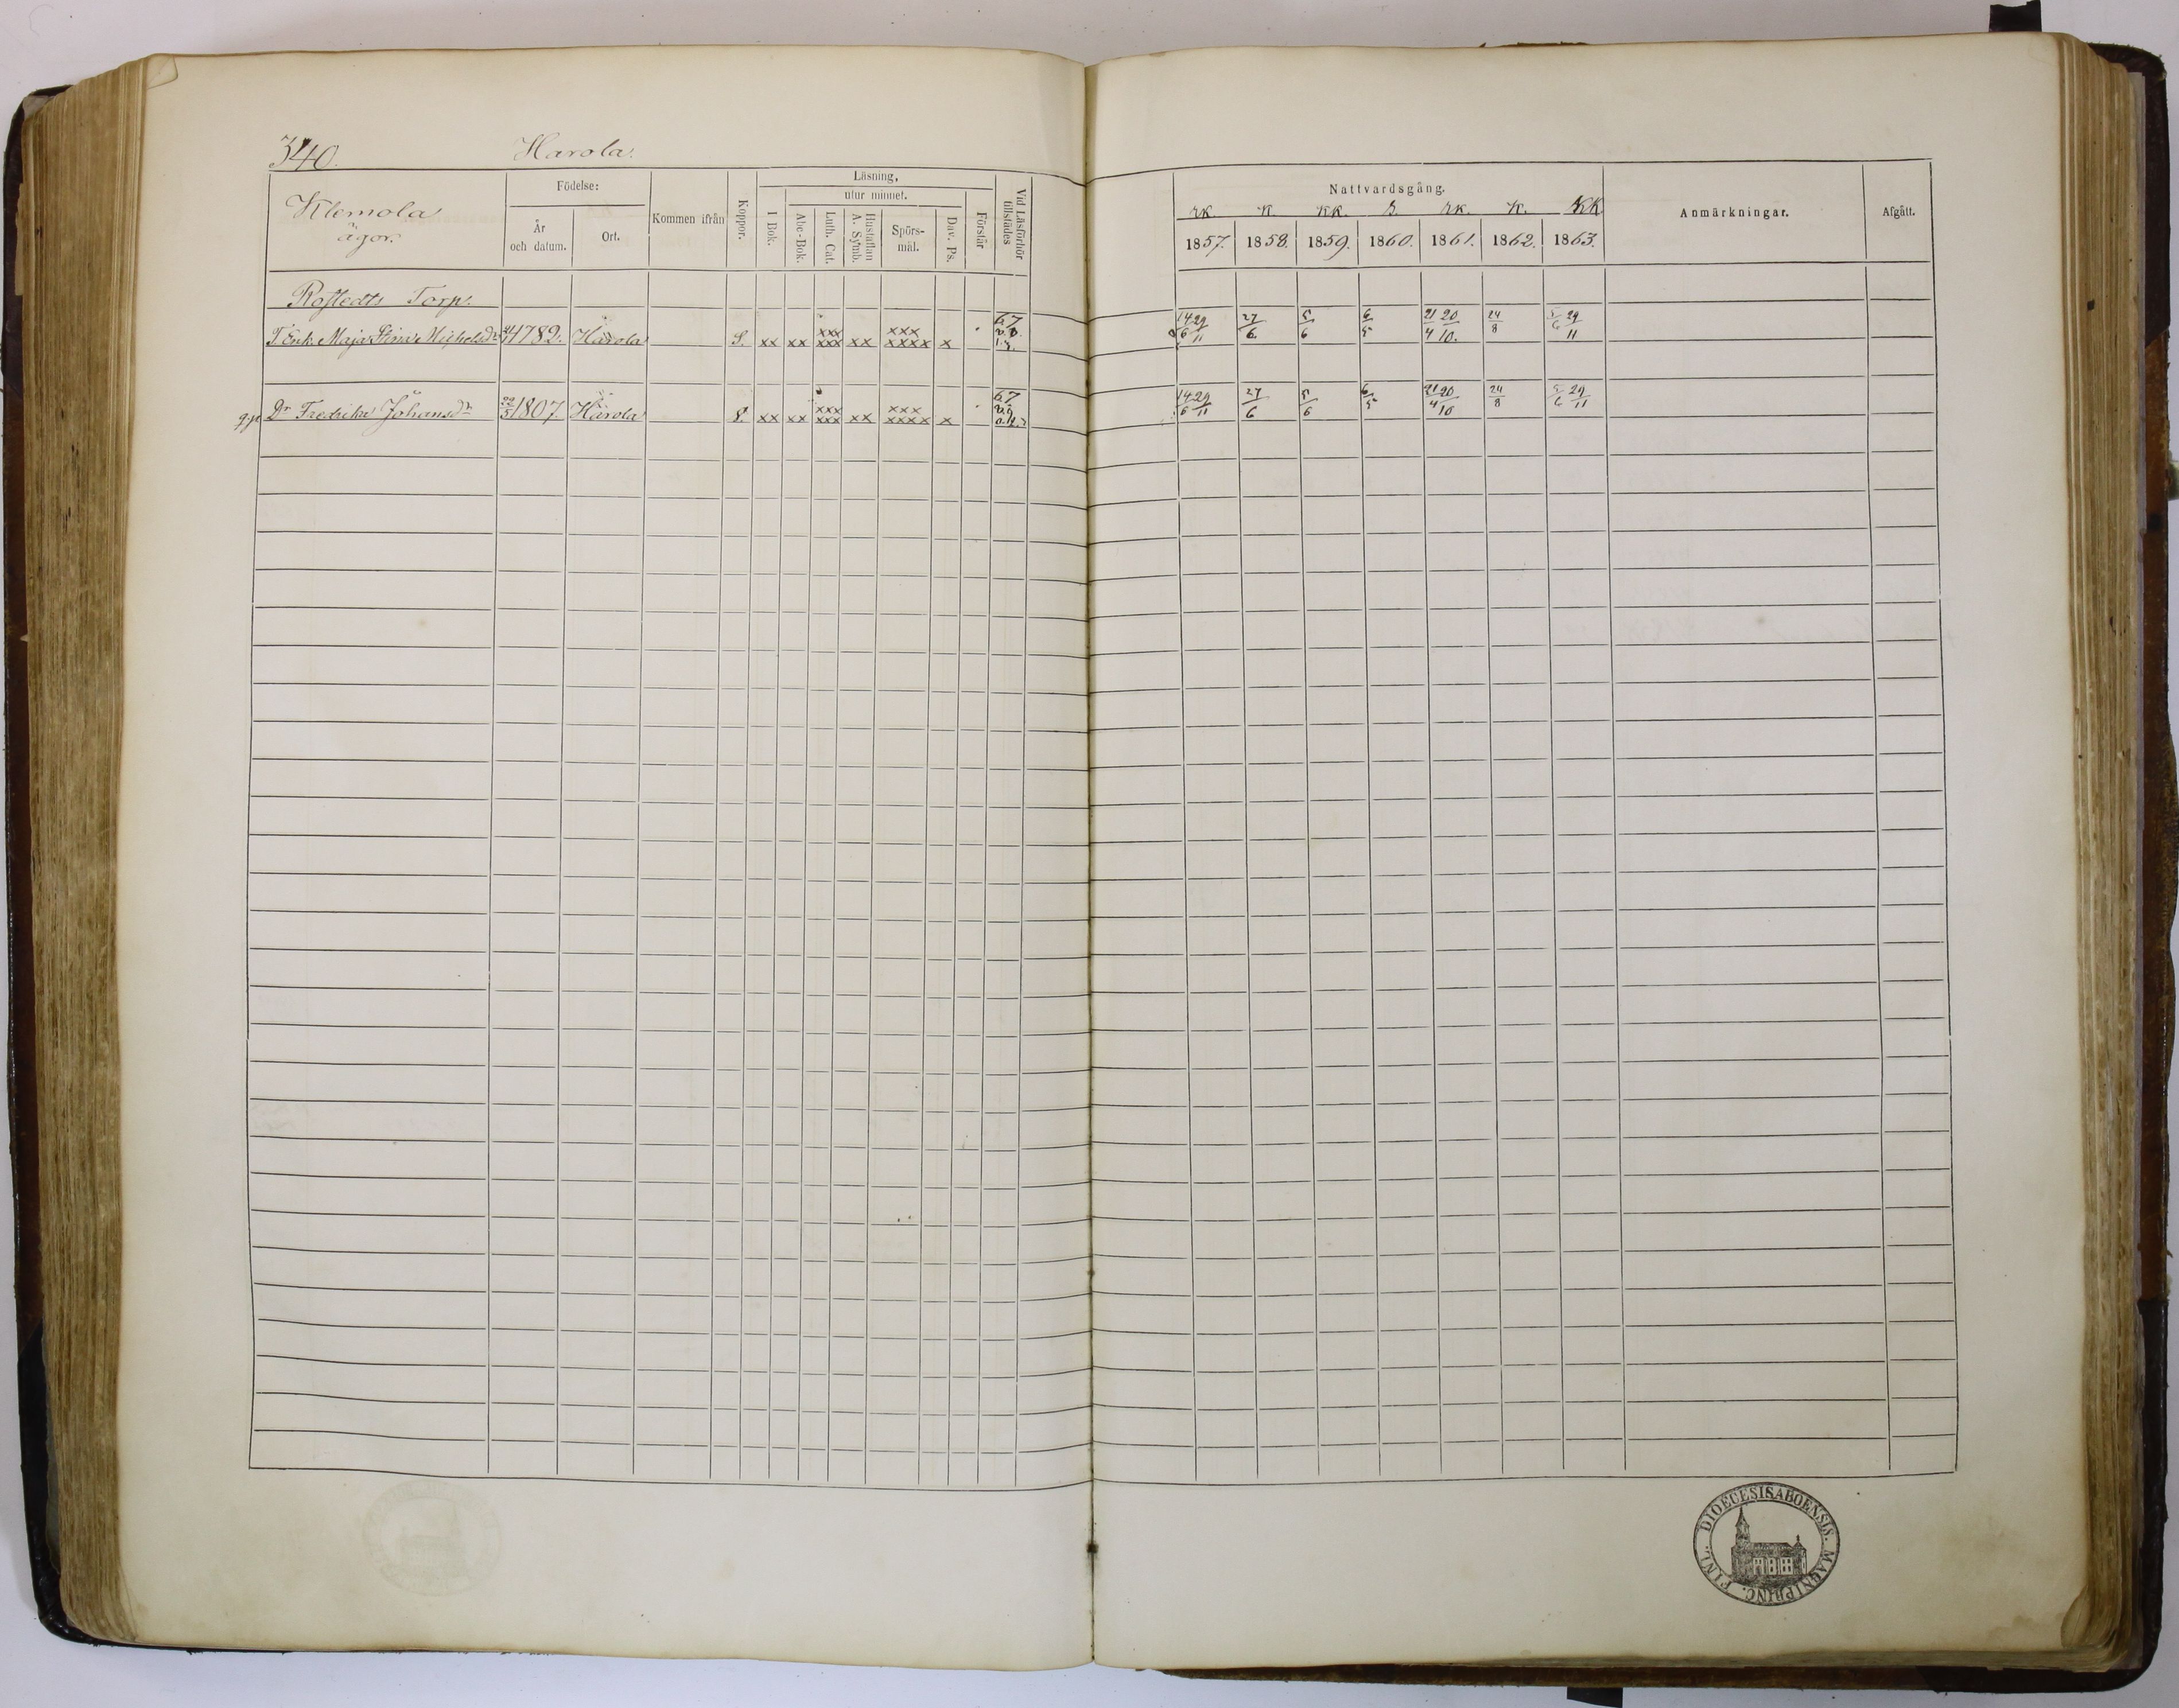 340. Harola.
Klemola
ägor.
Födelse:
År
och datum.
Ort.
Kommen ifrån
Koppor.
Läsning,
I Bok.
utur minnet.
Abc-Bok.
Luth. Cat.
Hustaflan
A. Symb.
Spörs-
mål.
Dav. Ps.
Förstår
Vid Läsförhör
tillstädes
Nattvardsgång.
RK K. KK. RK. K. KK
1857. 1858. 1859. 1860. 1861. 1862. 1863.
Anmärkningar.
Afgått.
Rostedts Torp.
T. Enk. Maja Stina Michelsdr 1782. Harola S. xx xx xxx xxx xx xxx xxxx x 67 14/6 29/11 27/6 5/6 6/5 21/4 20/10. 24/8 5/6 29/11
Dr Fredrika Johansdr 1807 Harola S. xx xx xxx xxx xx xxx xxxx x 67 14/6 29/11 27/6 5/6 6/5 21/4 20/10 24/8 5/6 29/11
DIOECESIS ABOENSIS. MAGNI PRINC. FINL.